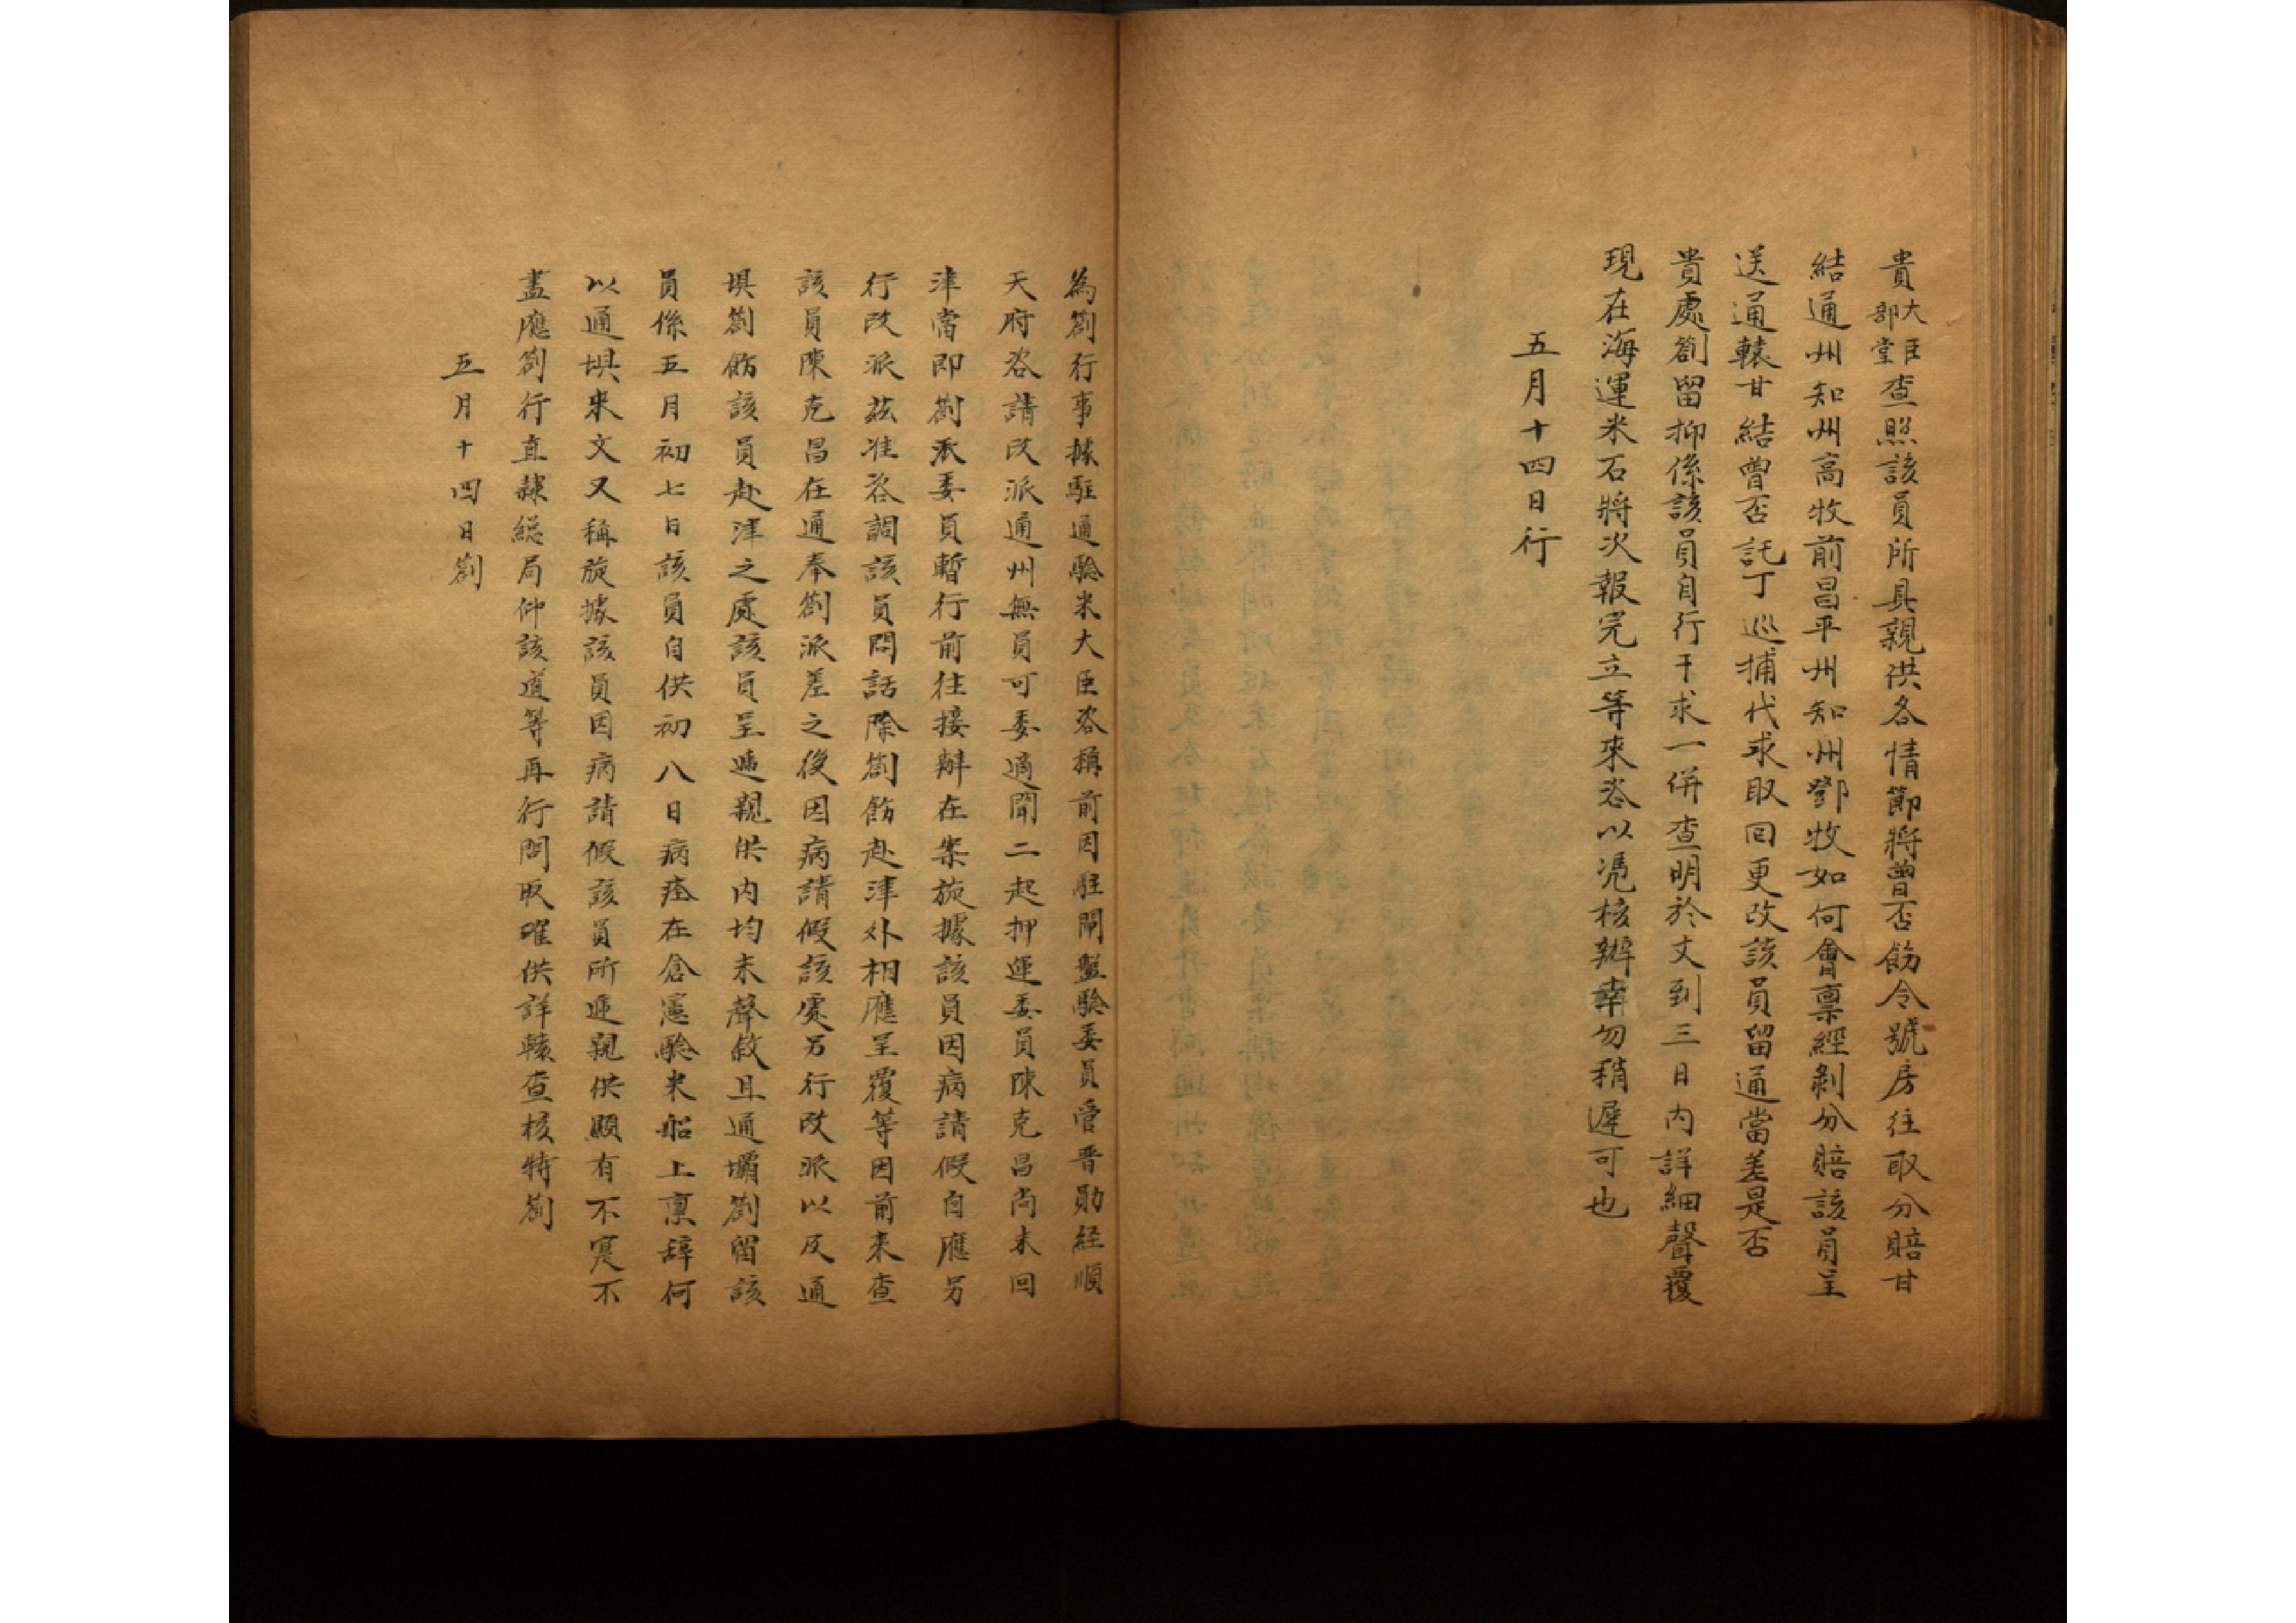 貴大臣部堂查照該員所具親供各情節將曾否飭令號房往取分賠甘
結通州知州高牧前昌平州知州鄧牧如何會稟經剝分賠該員呈
送通轅甘結曾否託丁巡捕代求取回更改該員留通當差是否
貴處劄留抑係該員自行干求一併查明於文到三日內詳細聲覆
現在海運米石將次報完立等來咨以憑核辦幸勿稍遲可也
五月十四日行
為劄行事據駐通驗米大臣咨稱前因駐閘盤驗委員管晋勛經順
天府咨請改派通州無員可委適聞二起押運委員陳克昌尚未回
津當即劄派委員暫行前往接辦在案旋據該員因病請假自應另
行改派茲准咨調該員問話除劄飭赴津外相應呈覆等因前來查
該員陳克昌在通奉劄派差之後因病請假該處另行改派以及通
垻劄飭該員赴津之處該員呈遞親供内均未聲敘且通壩劄留該
員係五月初七日該員自供初八日病痊在倉憲驗米船上稟辭何
以通垻來文又稱旋據該員因病請假該員所遞親供顯有不寔不
盡應劄行直隸総局仰該道等再行問取確供詳轅查核特劄
五月十四日劄